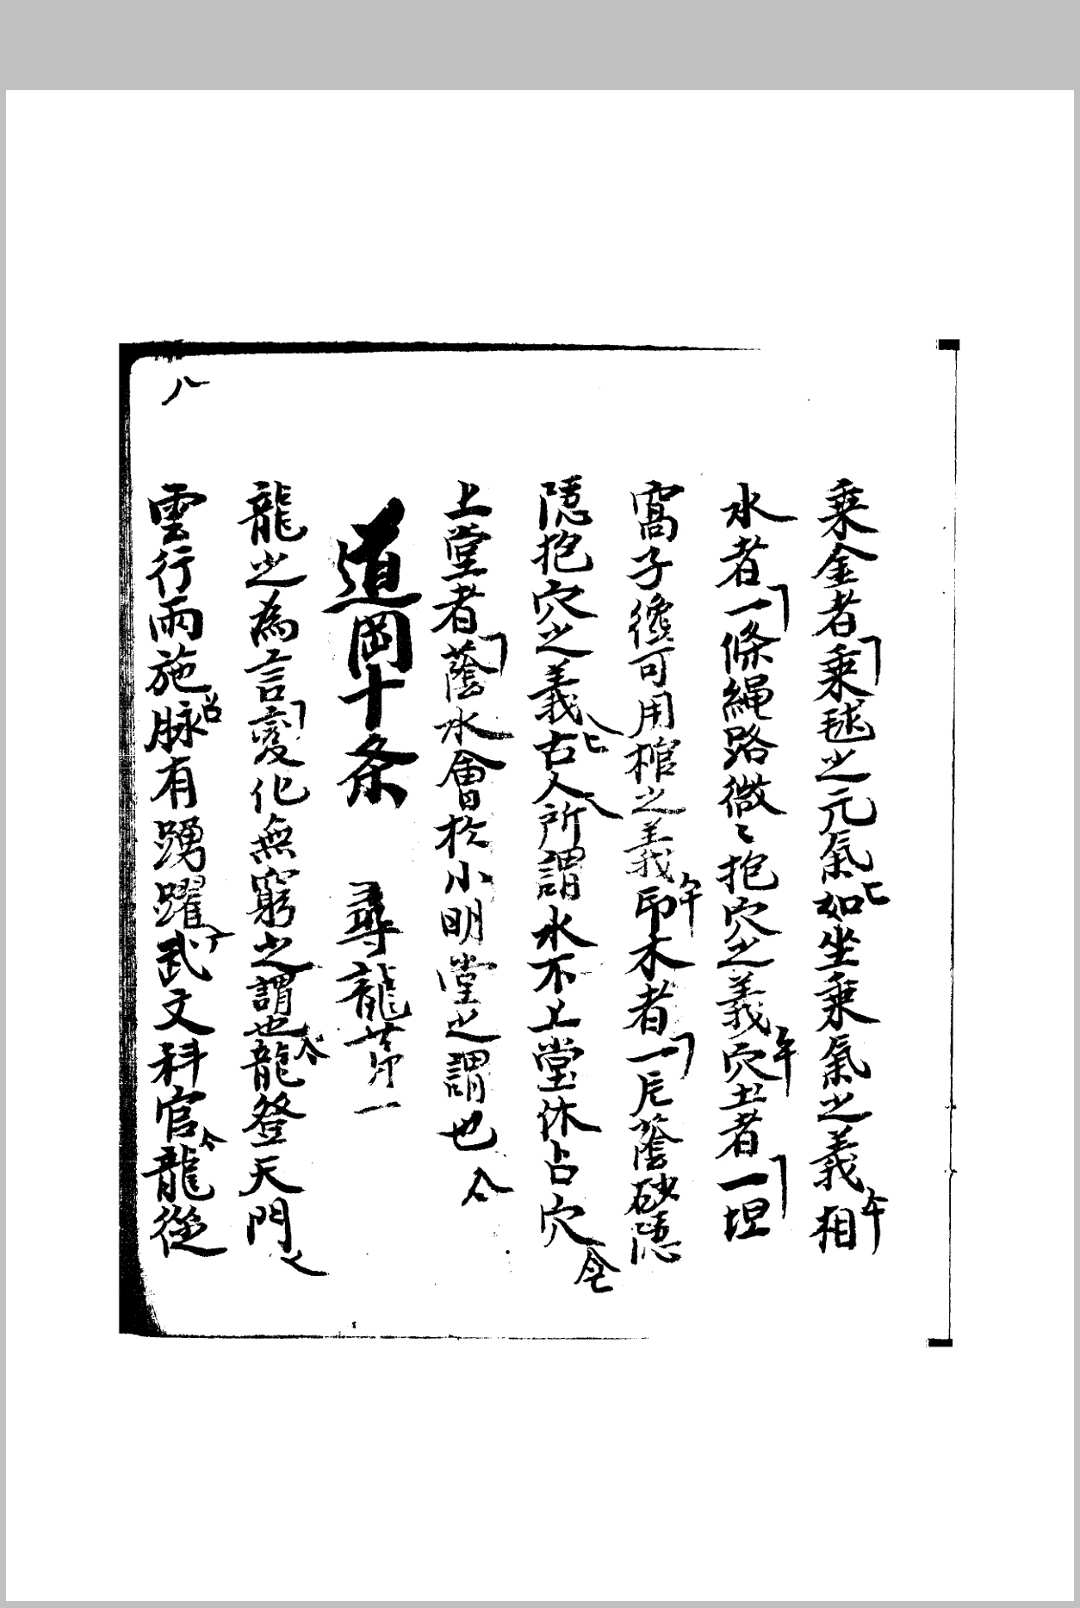 乘金者乘毬之元氣如坐乘氣之義相
水者一條繩路微〻抱穴之義穴土者一坦
窩子纔可用棺之義印木者一片蔭砂隱
隱抱穴之義古人所謂水不上堂休占穴
上堂者蔭水會於小明堂之謂也
道岡十条 尋龍苐一
龍之為言変化無窮之謂也龍登天門
雲行雨施脉有踴躍武文科官龍從
八